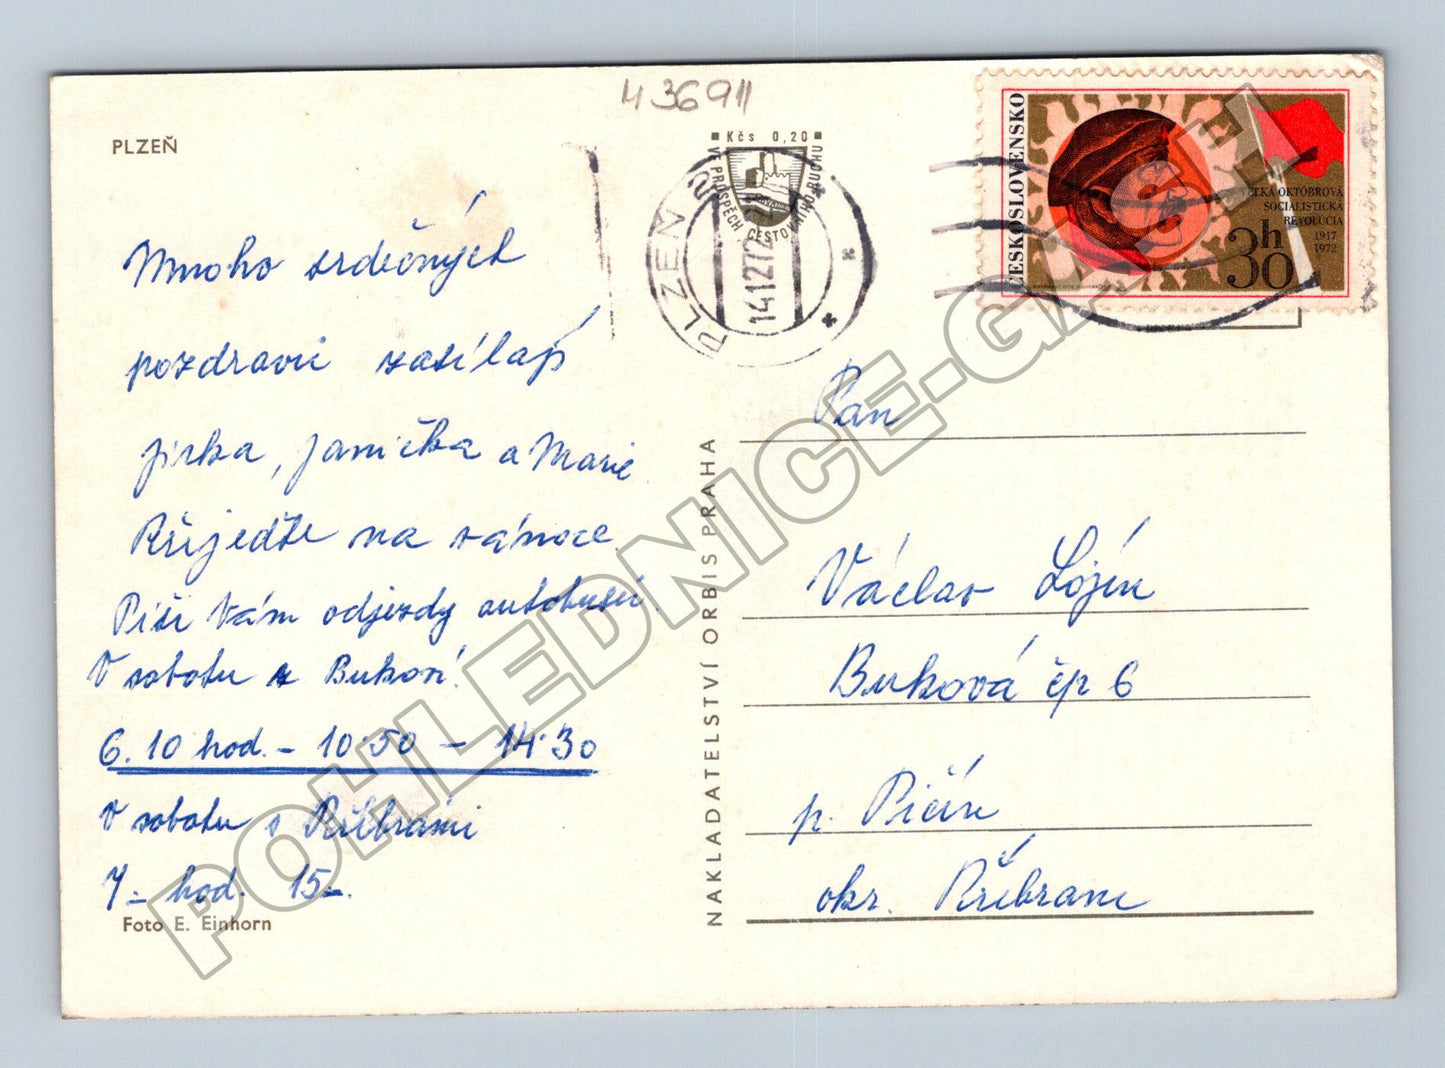 43691
PLZEŇ
Kčs 0,20
VE PROSPĚCH CESTOVNÍHO RUCHU
PLZEŇ 2
14.12.72
ČESKOSLOVENSKO
VEĽKÁ OKTÓBROVÁ
SOCIALISTICKÁ
REVOLÚCIA
1917
1972
30h
Mnoho srdečných
pozdravů zasílají
Jirka, Janička a Marie
Přijeďte na vánoce.
Píši Vám odjezdy autobusů.
V sobotu z Bukové.
6.10 hod. - 10.50 - 14.30
V sobotu z Příbrami
7- hod. 15-.
Foto E. Einhorn
NAKLADATELSTVÍ ORBIS PRAHA
Pan
Václav
Buková čp 6
p. Pičín
okr. Příbram
POHLEDNICE-GALISH